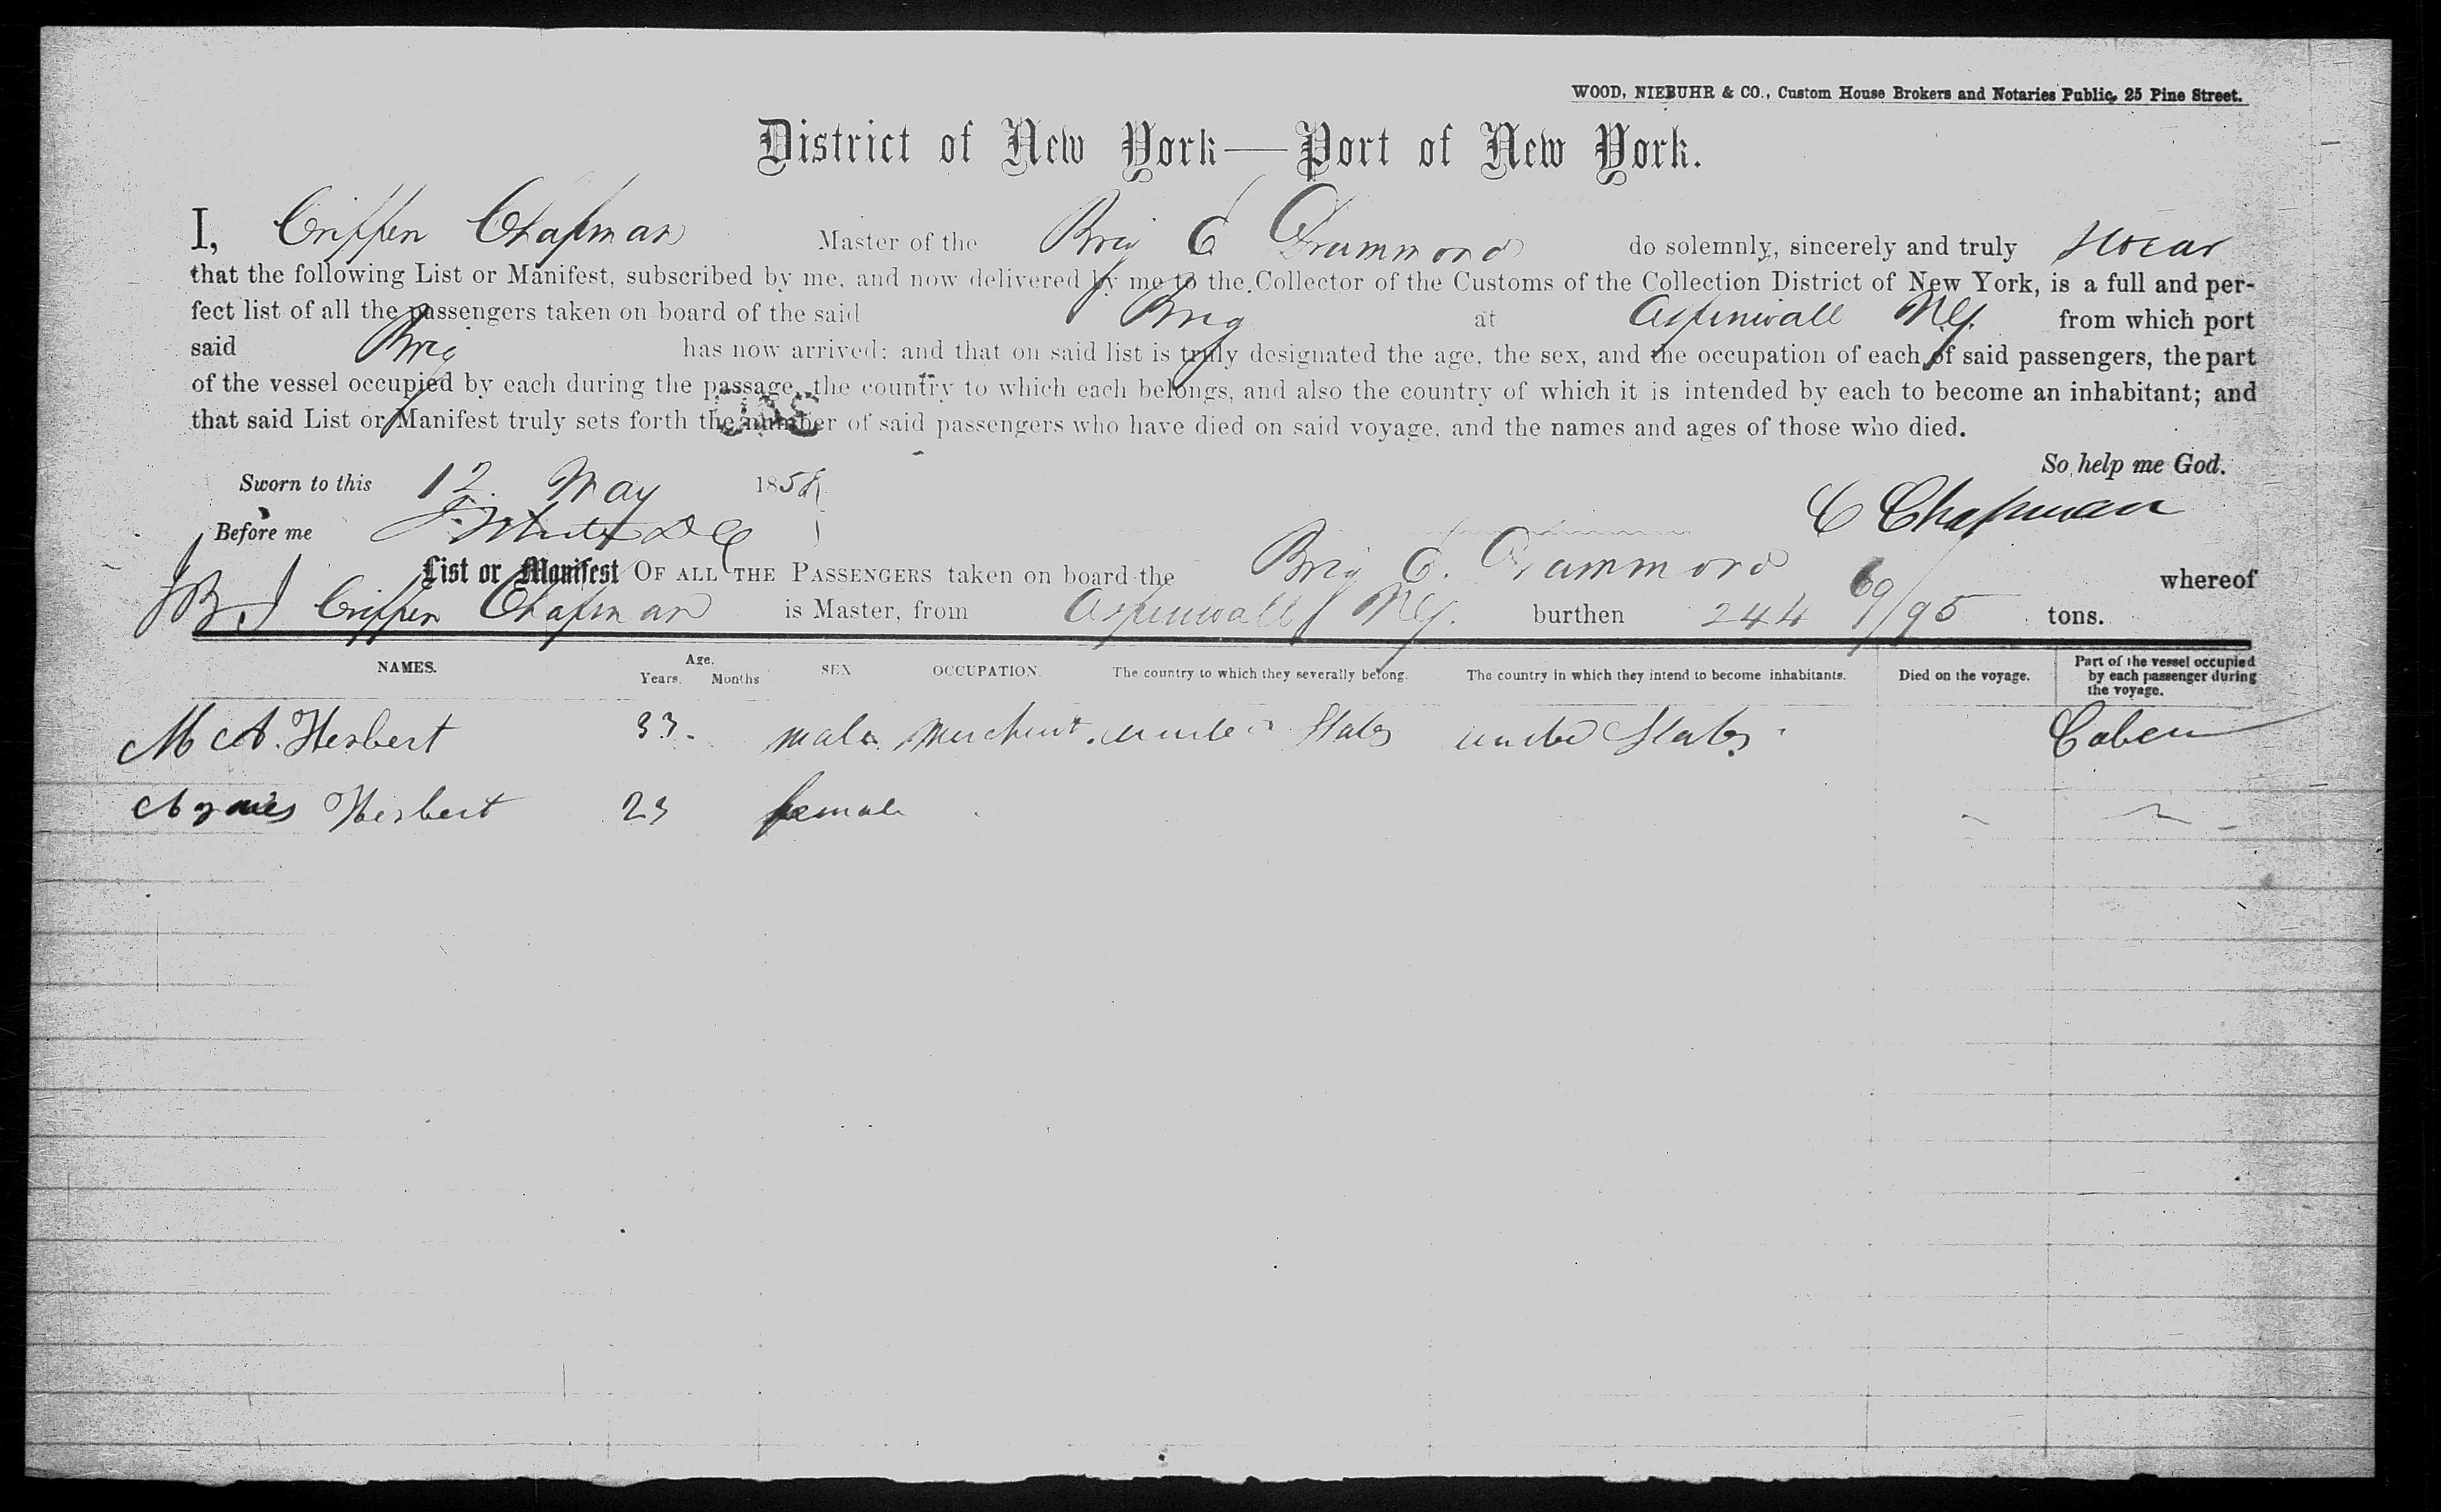 WOOD, NIEBUHR & CO., Custom House Brokers and Notaries Public, 25 Pine Street.
District of New York—Port of New York.
I, Criffen Chapman Master of the Brig C Drummond do solemnly, sincerely and truly swear
that the following List or Manifest, subscribed by me, and now delivered by me to the Collector of the Customs of the Collection District of New York, is a full and per-
fect list of all the passengers taken on board of the said Brig at Aspinwall N.G. from which port
said Brig has now arrived; and that on said list is truly designated the age, the sex, and the occupation of each of said passengers, the part
of the vessel occupied by each during the passage, the country to which each belongs, and also the country of which it is intended by each to become an inhabitant; and
that said List or Manifest truly sets forth the number of said passengers who have died on said voyage, and the names and ages of those who died.
So help me God.
Sworn to this 12. May 1858
C Chapman
Before me
List or Manifest OF ALL THE PASSENGERS taken on board the Brig C. Drummond whereof
Criffen Chapman is Master, from Aspinwall N.G. burthen 244 69/95 tons.
NAMES. Age. Years. Months SEX OCCUPATION. The country to which they severally belong. The country in which they intend to become inhabitants. Died on the voyage. Part of the vessel occupied by each passenger during the voyage.
M A. Herbert 33. male merchant. united States united States. Caben
Agnes Herbert 23 female